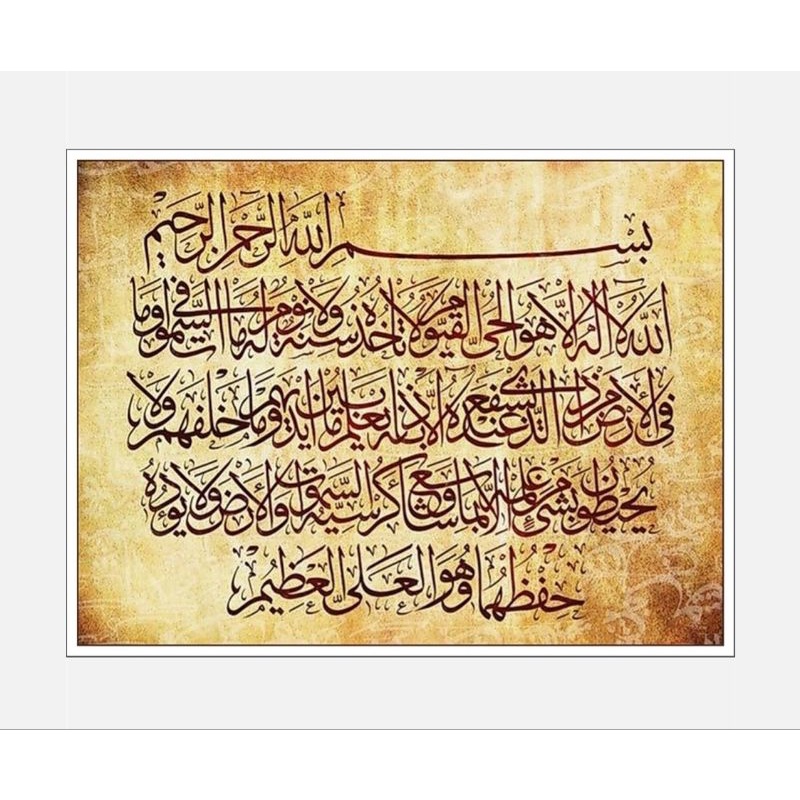 بسم الله الرحمن الرحيم
الله لا اله الا هو الحى القيوم لا تأخذه سنة ولا نوم له ما فى السموات وما
فى الارض من ذا الذى يشفع عنده الا باذنه يعلم ما بين ايديهم وما خلفهم ولا
يحيطون بشىء من علمه الا بما شاء وسع كرسيه السموات والارض ولا يؤده
حفظهما وهو العلى العظيم